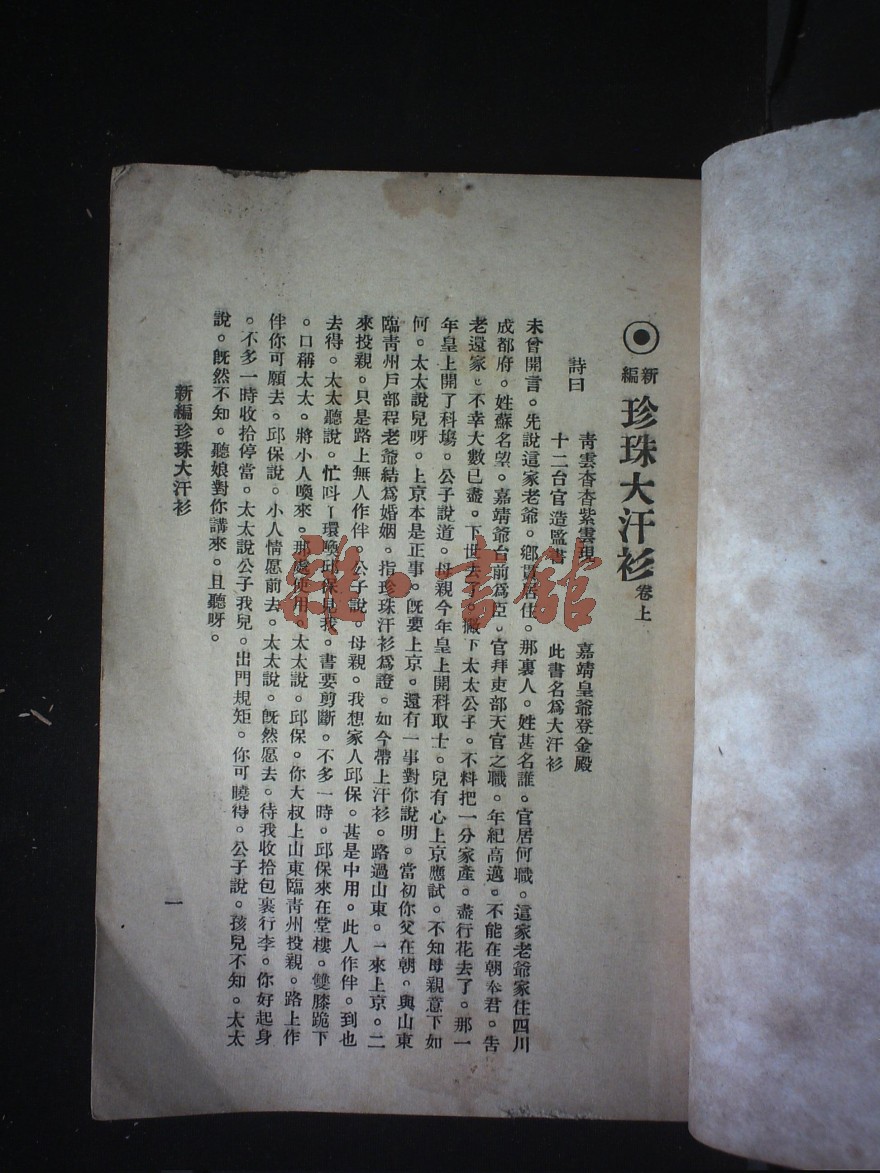 新編 珍珠大汗衫 卷上
詩曰
青雲杳杳紫雲現 嘉靖皇爺登金殿
十二台官造監書 此書名爲大汗衫
未曾開言。先說這家老爺。鄉貫居住。那裏人。姓甚名誰。官居何職。這家老爺家住四川
成都府。姓蘇名望。嘉靖爺台前爲臣。官拜吏部天官之職。年紀高邁。不能在朝奉君。告
老還家。不幸大數已盡。下世去了。撇下太太公子。不料把一分家產。盡行花去了。那一
年皇上開了科場。公子說道。母親今年皇上開科取士。兒有心上京應試。不知母親意下如
何。太太說兒呀。上京本是正事。旣要上京。還有一事對你說明。當初你父在朝。與山東
臨青州戶部程老爺結爲婚姻。指珍珠汗衫爲證。如今帶上汗衫。路過山東。一來上京。二
來投親。只是路上無人作伴。公子說。母親。我想家人邱保。甚是中用。此人作伴。到也
去得。太太聽說。忙叫丫環喚邱保見我。書要剪斷。不多一時。邱保來在堂樓。雙膝跪下
。口稱太太。將小人喚來。那處使用。太太說。邱保。你大叔上山東臨青州投親。路上作
伴你可願去。邱保說。小人情愿前去。太太說。旣然愿去。待我收拾包裹行李。你好起身
。不多一時收拾停當。太太說公子我兒。出門規矩。你可曉得。公子說。孩兒不知。太太
說。旣然不知。聽娘對你講來。且聽呀。
新編珍珠大汗衫
一
雜·書館